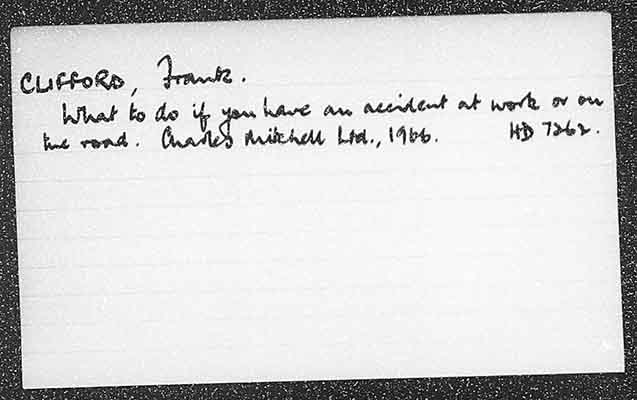 CLIFFORD, Frank.
What to do if you have an accident at work or on
the road. Charles Mitchell Ltd., 1966. HD 7262.